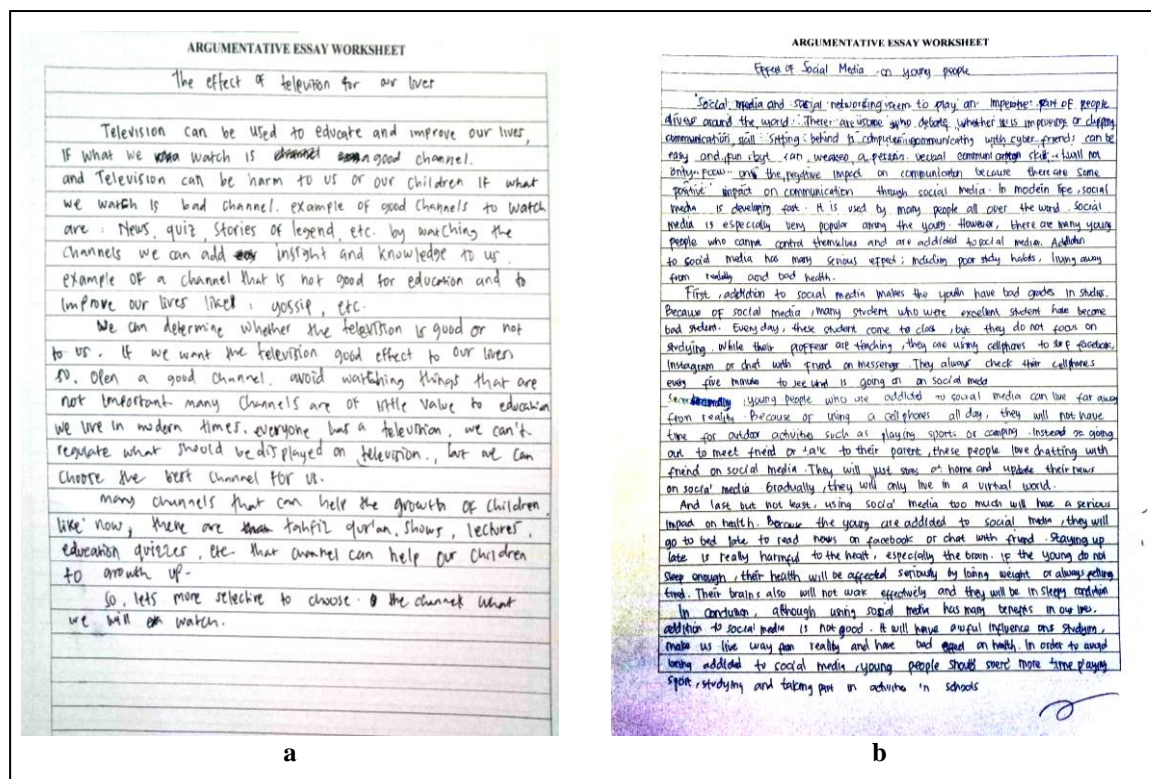 ARGUMENTATIVE ESSAY WORKSHEET
The effect of television for our lives
Television can be used to educate and improve our lives,
If what we watch is good channel.
and Television can be harm to us or our children If what
we watch is bad channel. example of good Channels to watch
are : News, quiz, stories of legend, etc. by watching the
channels we can add insight and knowledge to us.
example of a channel that is not good for education and to
improve our lives like : gossip, etc.
We can determine whether the television is good or not
to us. If we want the television good effect to our lives
so. Open a good channel. avoid watching things that are
not important many channels are of little value to education
we live in modern times. everyone has a television, we can't
regulate what should be displayed on television, but we can
choose the best channel for us.
many channels that can help the growth of children
like now, there are tahfiz qur'an, shows, lectures,
education quizzes, etc. that channel can help our children
to growth up.
So, lets more selective to choose the channel what
we will watch.
a
ARGUMENTATIVE ESSAY WORKSHEET
Effect of Social Media on young people
Social media and social networking seem to play an imperative part of people
lives around the world. There are some who debate whether it is improving or
communication skill. Sitting behind a computer communicating with cyber friends can be
easy and fun but can weaken a person. verbal communication skill. I will not
only focus on the negative impact on communication because there are some
positive impact on communication through social media. In modern life, social
media is developing fast. It is used by many people all over the word. Social
media is especially very popular among the young. However, there are many young
people who cannot control themselves and are addicted to social media. Addiction
to social media has many serious effect; including poor study habits, living away
from reality and bad health.
First, addiction to social media makes the youth have bad grades in studies.
Because of social media, many student who were excellent student have become
bad student. Every day, these student come to class, but they do not focus on
studying. While their proffesor are teaching, they are using cellphones to surf facebook,
Instagram or chat with friend on messenger. They always check their cellphones
every five minute to see what is going on on social media
young people who are addicted to social media can live far away
from reality. Because of using a cell phones all day, they will not have
time for outdoor activities such as playing sports or camping. Instead of going
out to meet friend or talk to their parent, these people love chatting with
friend on social media. They will just stay at home and update their news
on social media. Gradually, they will only live in a virtual world.
And last but not least, using social media too much will have a serious
impact on health. Because the young are addicted to social media, they will
go to bed late to read news on facebook or chat with friend. Staying up
late is really harmful to the heart, especially the brain. if the young do not
sleep enough, their health will be affected seriously by losing weight or always felling
tired. Their brains also will not work effectively and they will be in sleepy condition
In conclusion, although using social media has many benefits in our lives.
addition to social media is not good. It will have awful influence ons studying,
make us live way from reality and have bad effect on health. In order to avoid
being addicted to social media, young people should spend more time playing
sport, studying and taking part in activities in schools
b